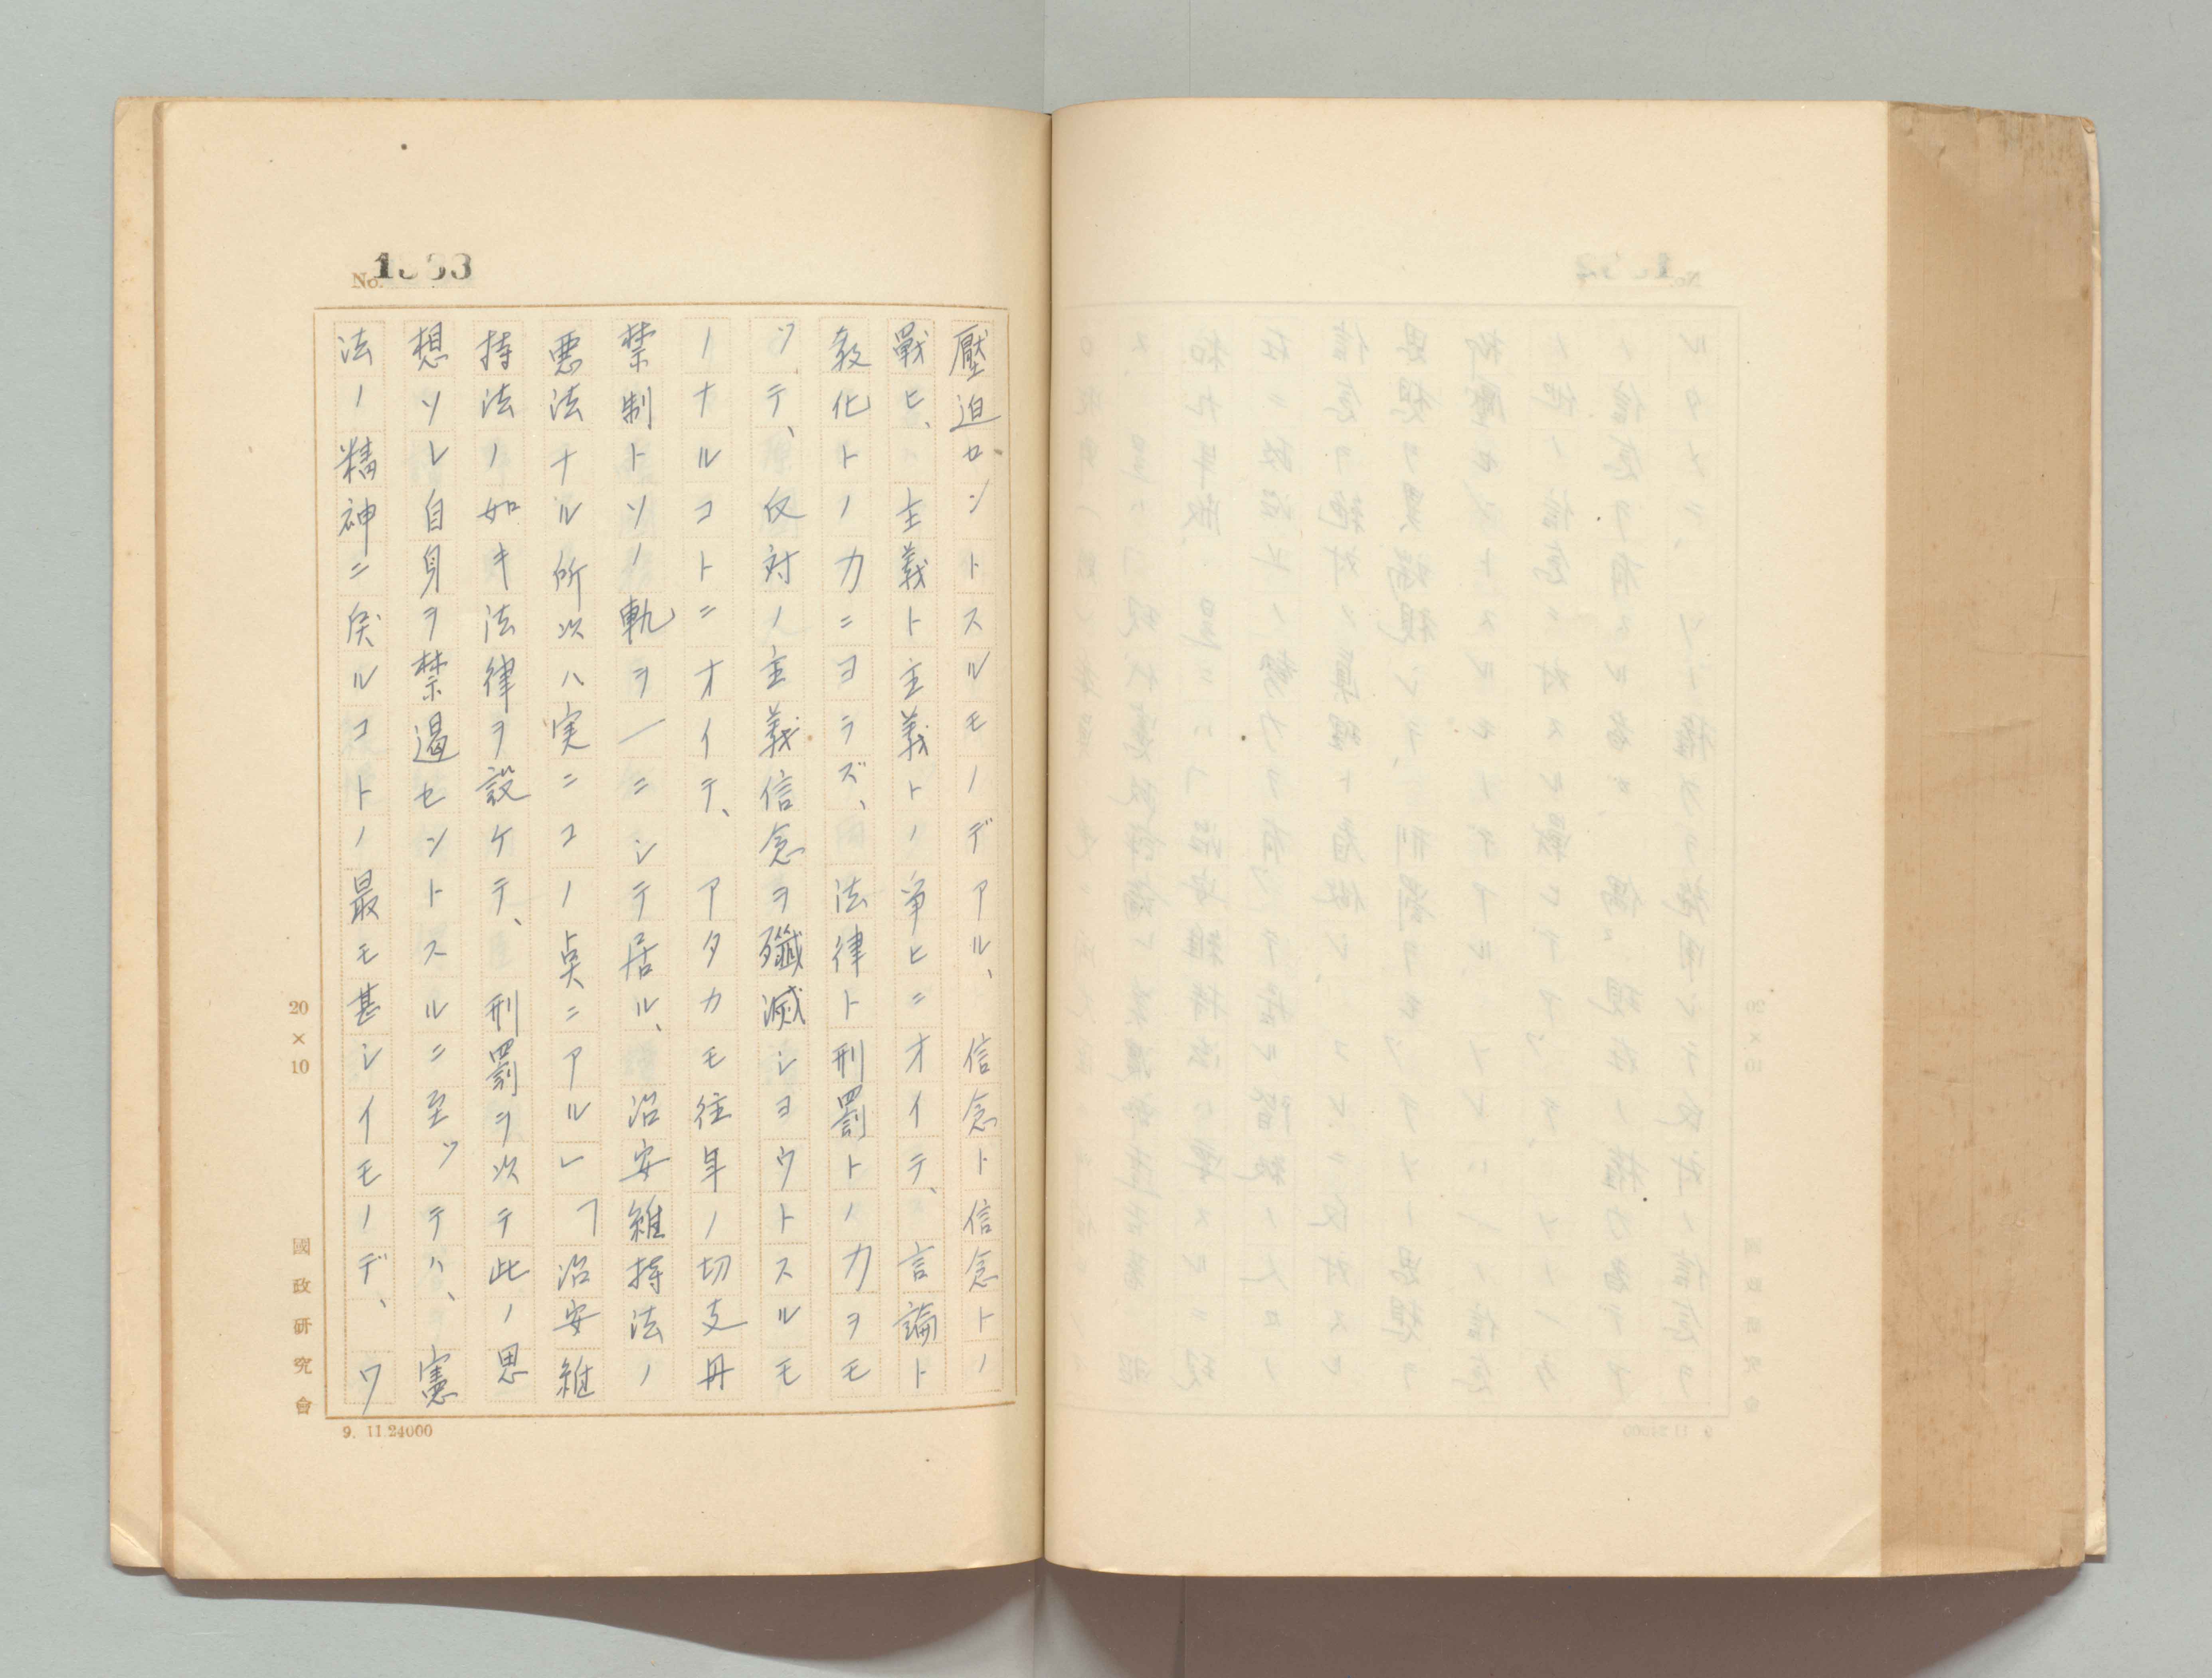 No.
壓迫セントスルモノデアル、信念ト信念トノ
戰ヒ、主義ト主義トノ爭ヒニオイテ、言論ト
教化トノ力ニヨラズ、法律ト刑罰トノ力ヲモ
ツテ、仅対ノ主義信念ヲ殲滅シヨウトスルモ
ノナルコトニオイテ、アタカモ往年ノ切支丹
禁制トソノ軌ヲ一ニシテ居ル、治安維持法ノ
悪法ナル所以ハ実ニコノ点ニアル」「治安維
持法ノ如キ法律ヲ設ケテ、刑罰ヲ以テ此ノ思
想ソレ自身ヲ禁遏セントスルニ至ツテハ、憲
法ノ精神ニ戻ルコトノ最モ甚シイモノデ、ワ
20×10
國政研究會
9. 11.24000